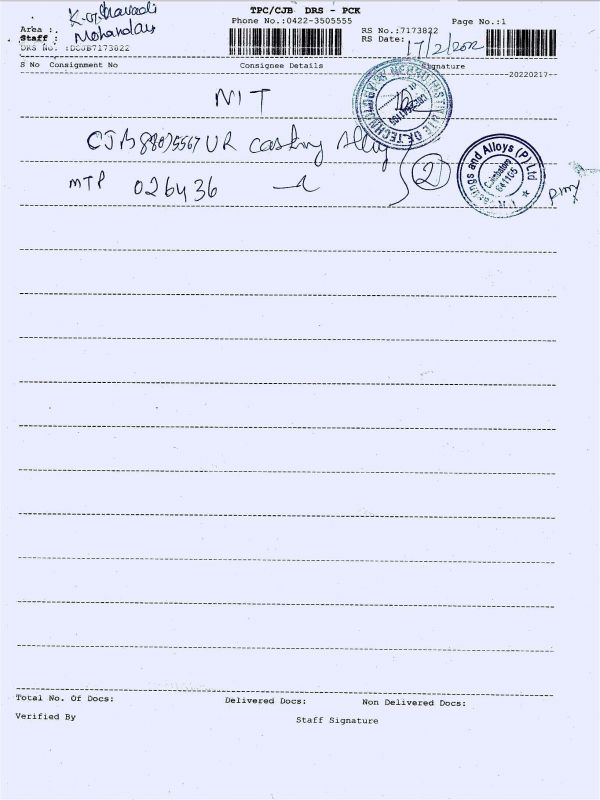 TPC/CJB DRS - PCK
Phone No.:0422-3505555
Page No.:1
Area :.
Staff : Mohandas
DRS No. :DCJB7173822
RS No.:7173822
RS Date: 17/2/2022
S No Consignment No Consignee Details Signature
20220217
NIT
CJB 88075567 UR casting Alloy
MTP 026436
2
ings and Alloys (P) Ltd
Coimbatore
641105
Total No. Of Docs: Delivered Docs: Non Delivered Docs:
Verified By Staff Signature